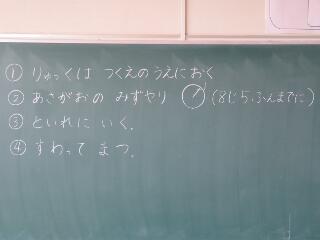 ① りゅっくは つくえのうえにおく
② あさがおの みずやり (8じ5ふんまでに)
③ といれに いく。
④ すわって まつ。